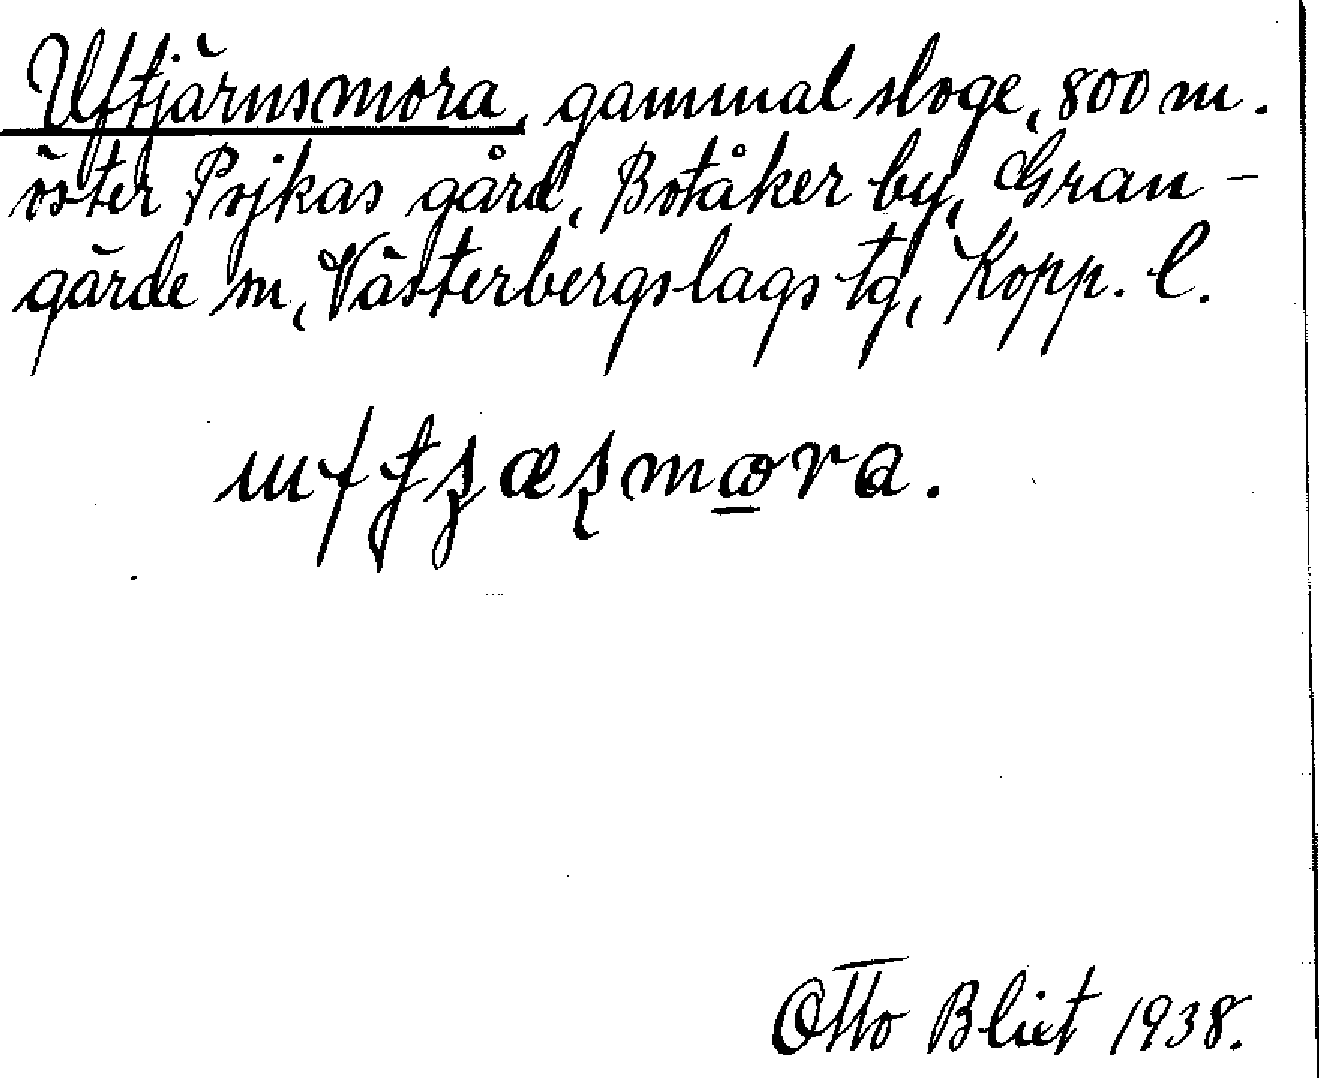 Uftjärnsmora, gammal sloge, 800 m.
öster Pojkas gård, Botåker by, Gran-
gärde sn, Västerbergslags tg, Kopp. l.
mora.
Otto Blixt 1938.